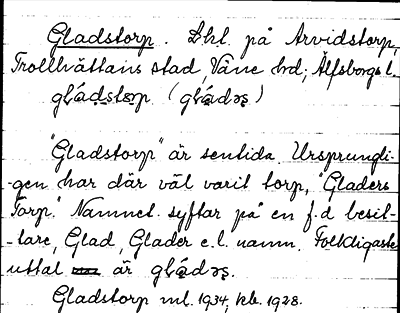 Gladstorp. Lht. på Arvidstorp,
Trollhättans stad, Väne hd; Älfsborgs l.
gládstɷrp (gládəs)
"Gladstorp" är sentida. Ursprungli-
-gen har där väl varit torp, "Gladers
Torp." Namnet syftar på en f.d besit-
-tare, Glad, Glader e.l. namn. Folkligaste
uttal är gládəs.
Gladstorp ml. 1934, kb. 1928.